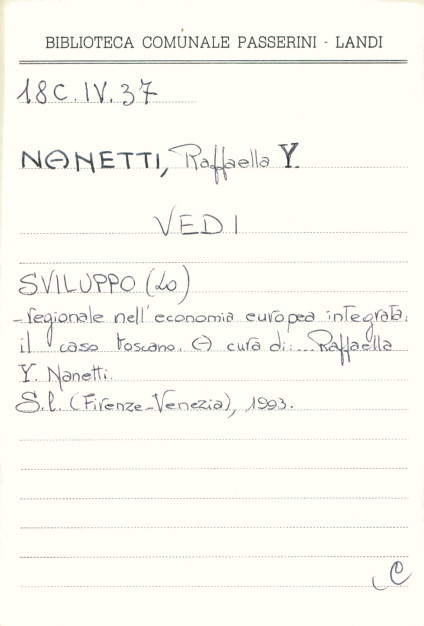 BIBLIOTECA COMUNALE PASSERINI - LANDI
18C.IV.37
NANETTI, Raffaella Y.
VEDI
SVILUPPO (Lo)
- regionale nell'economia europea integrata:
il caso toscano. A cura di:... Raffaella
Y. Nanetti.
S.l. (Firenze-Venezia), 1993.
C